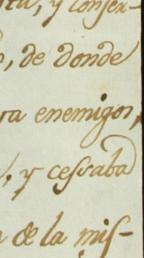 y conser-
, de donde
ra enemigos,
, y cesaba
de la mis-